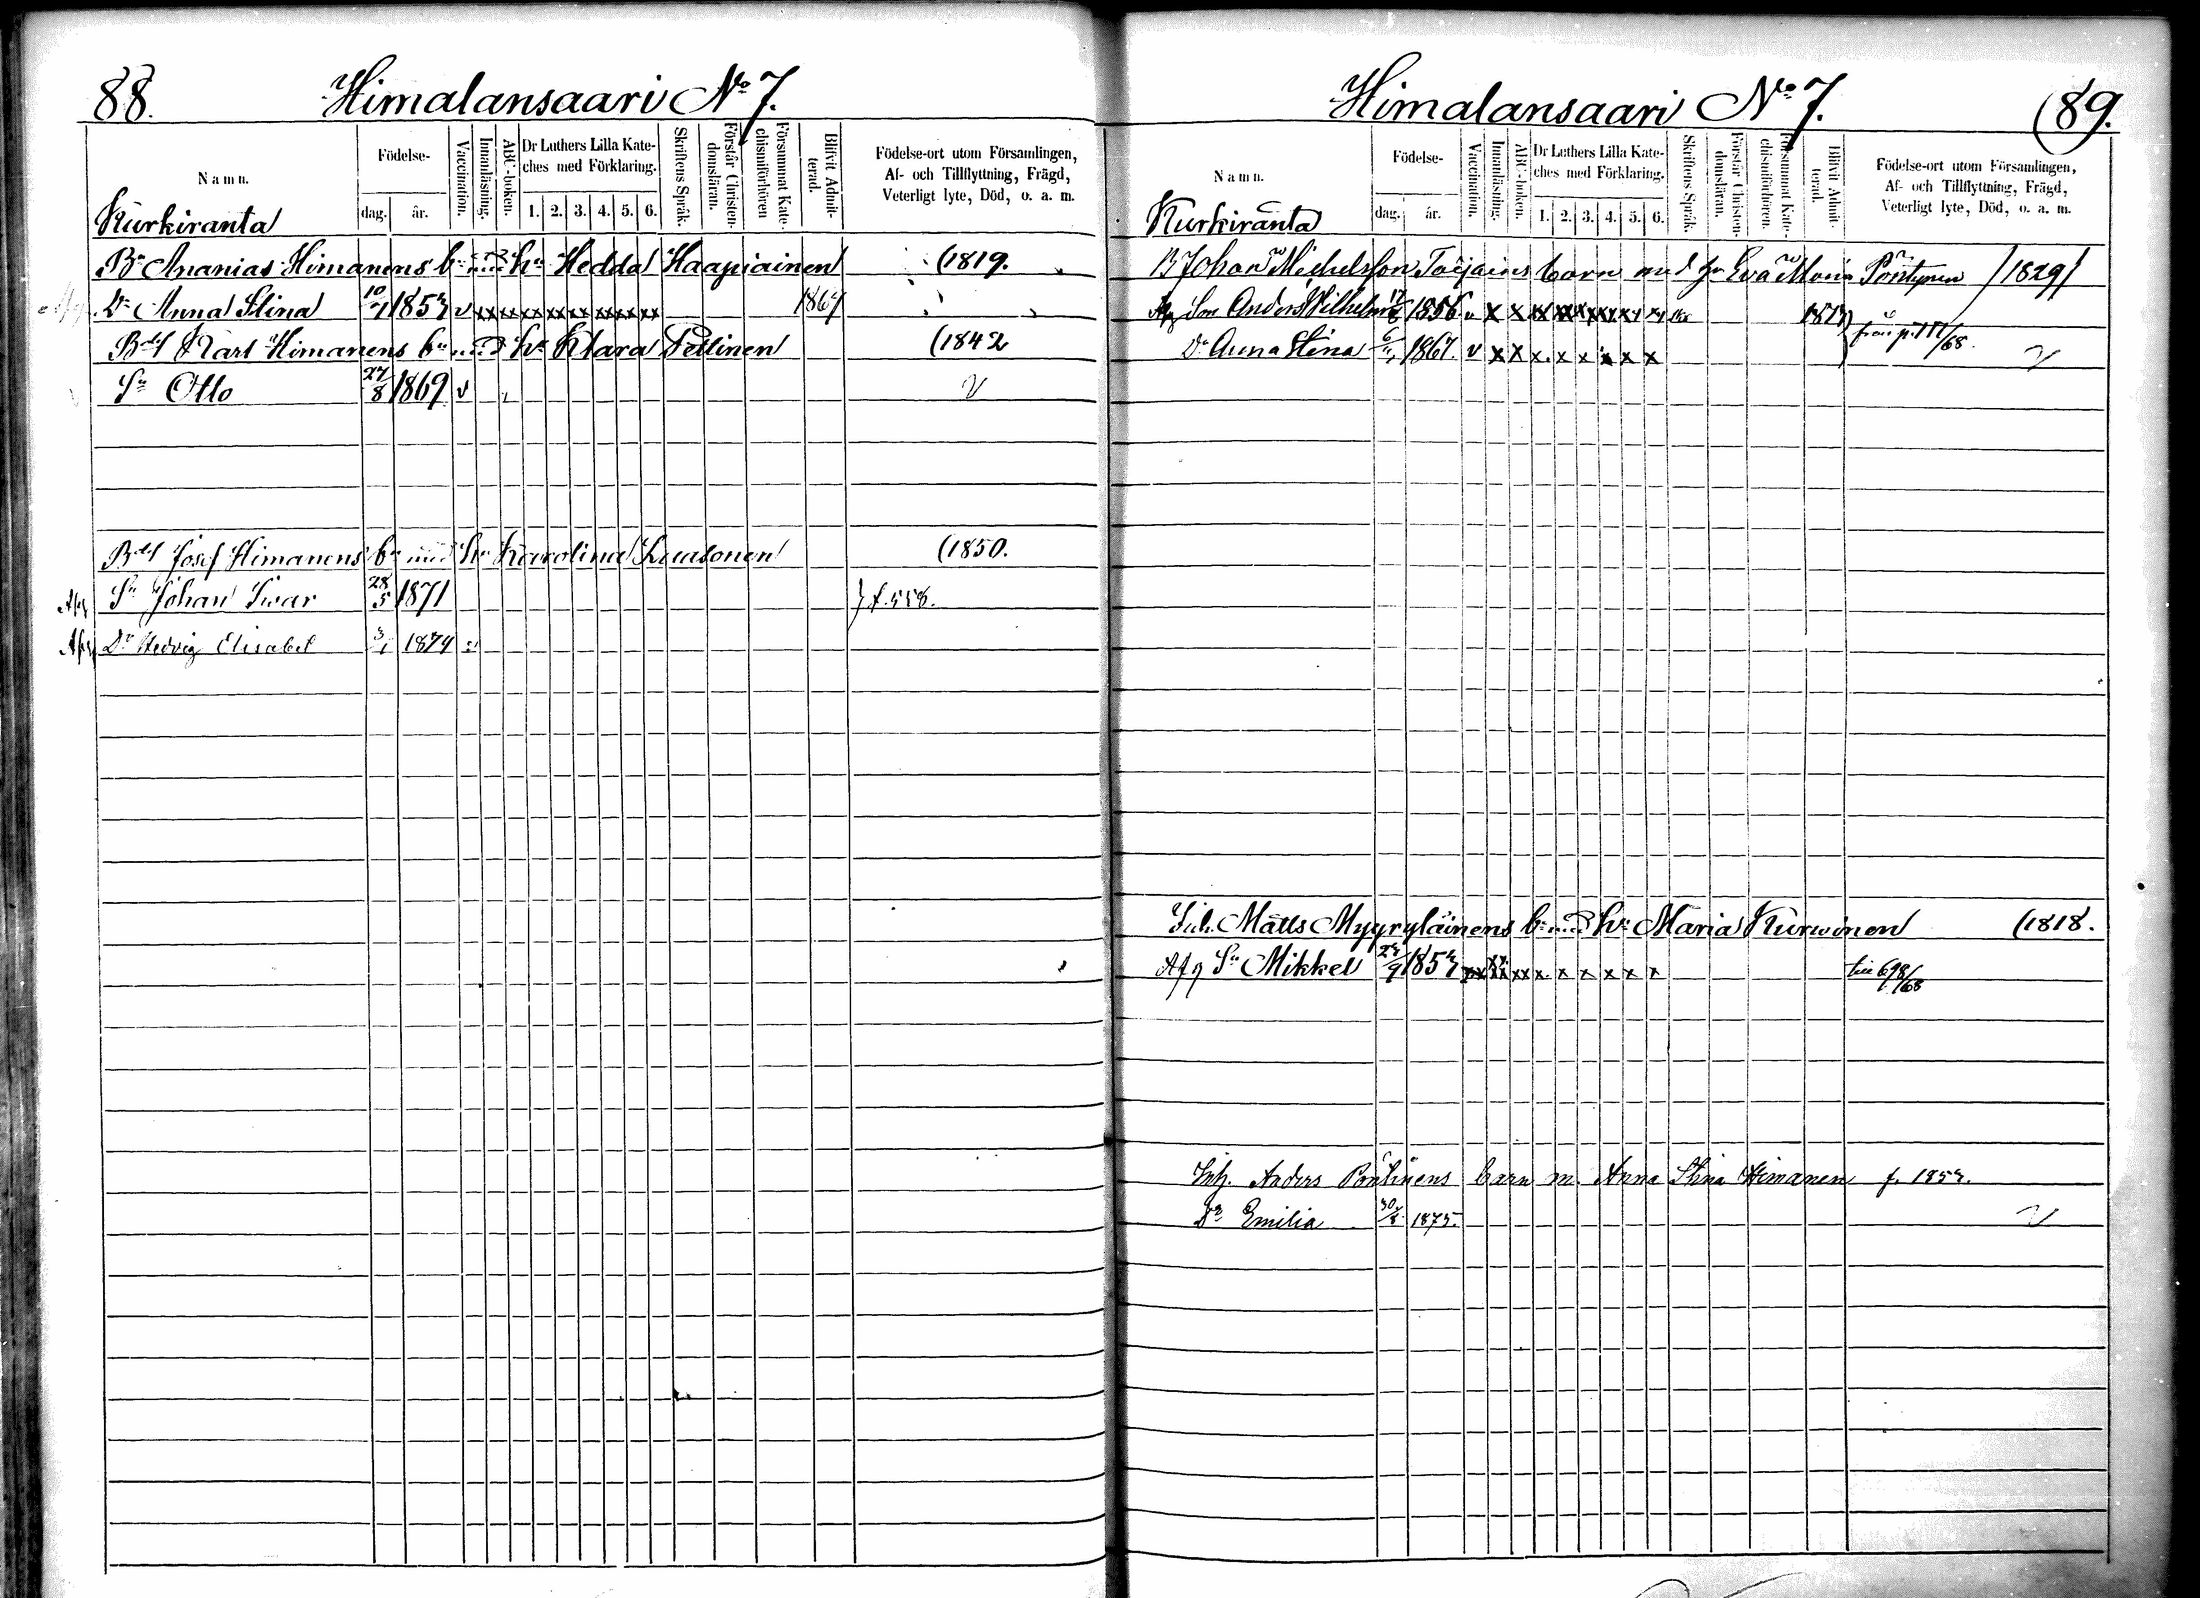 88.
Himalansaari No 7.
Namn.
Födelse-
dag.
år.
Vaccination.
Innanläsning.
ABC-boken.
Dr Luthers Lilla Kate-
ches med Förklaring.
1. 2. 3. 4. 5. 6.
Skriftens Språk.
Förstår Christen-
domsläran.
Försummat Kate-
chismiförhören
Blifvit Admit-
terad.
Födelse-ort utom Församlingen,
Af- och Tillflyttning, Frägd,
Veterligt lyte, Död, o. a. m.
Kurkiranta
Bn Ananias Himanens bn med hu Hedda Haapiainen (1819.
Dr Anna Stina 10/7 1853 v xx xx xx xx xx xx xx xx 1869
Bds Karl Himanens bn med hu Klara Pellinen (1842
Sn Otto 27/8 1869 v v
Bds Josef Himanens bn med hu Karolina (1850.
Afg Sn Johan Iwar 28/5 1871 } f. 558.
Afg Dr Hedvig Elisabet 3/1 1874
Himalansaari No 7.
(89.
Namn.
Födelse-
dag.
år.
Vaccination.
Innanläsning.
ABC-boken.
Dr Luthers Lilla Kate-
ches med Förklaring.
1. 2. 3. 4. 5. 6.
Skriftens Språk.
Förstår Christen-
domsläran.
Försummat Kate-
chismiförhören.
Blifvit Admit-
terad.
Födelse-ort utom Församlingen,
Af- och Tillflyttning, Frägd,
Veterligt lyte, Död, o. a. m.
Kurkiranta
B Johan Michelsson barn med hu Eva Maria Pöntynen /1829/
Afg Son Anders Wilhelm 1856. v x x xx xx xx xx xx xx
Dr Anna Stina 1867. v x x x. x x x x x från p. /68. v
Inh. Matts Myyryläinens bn med hu Maria Kurwinen (1818.
Afg Sn Mikkel 1853 xx xx xx x x x x x x till 698/68
Inh. Anders Pöntinens barn m. Anna Stina Himanen f. 1853.
Dr Emilia 30/8 1875. v